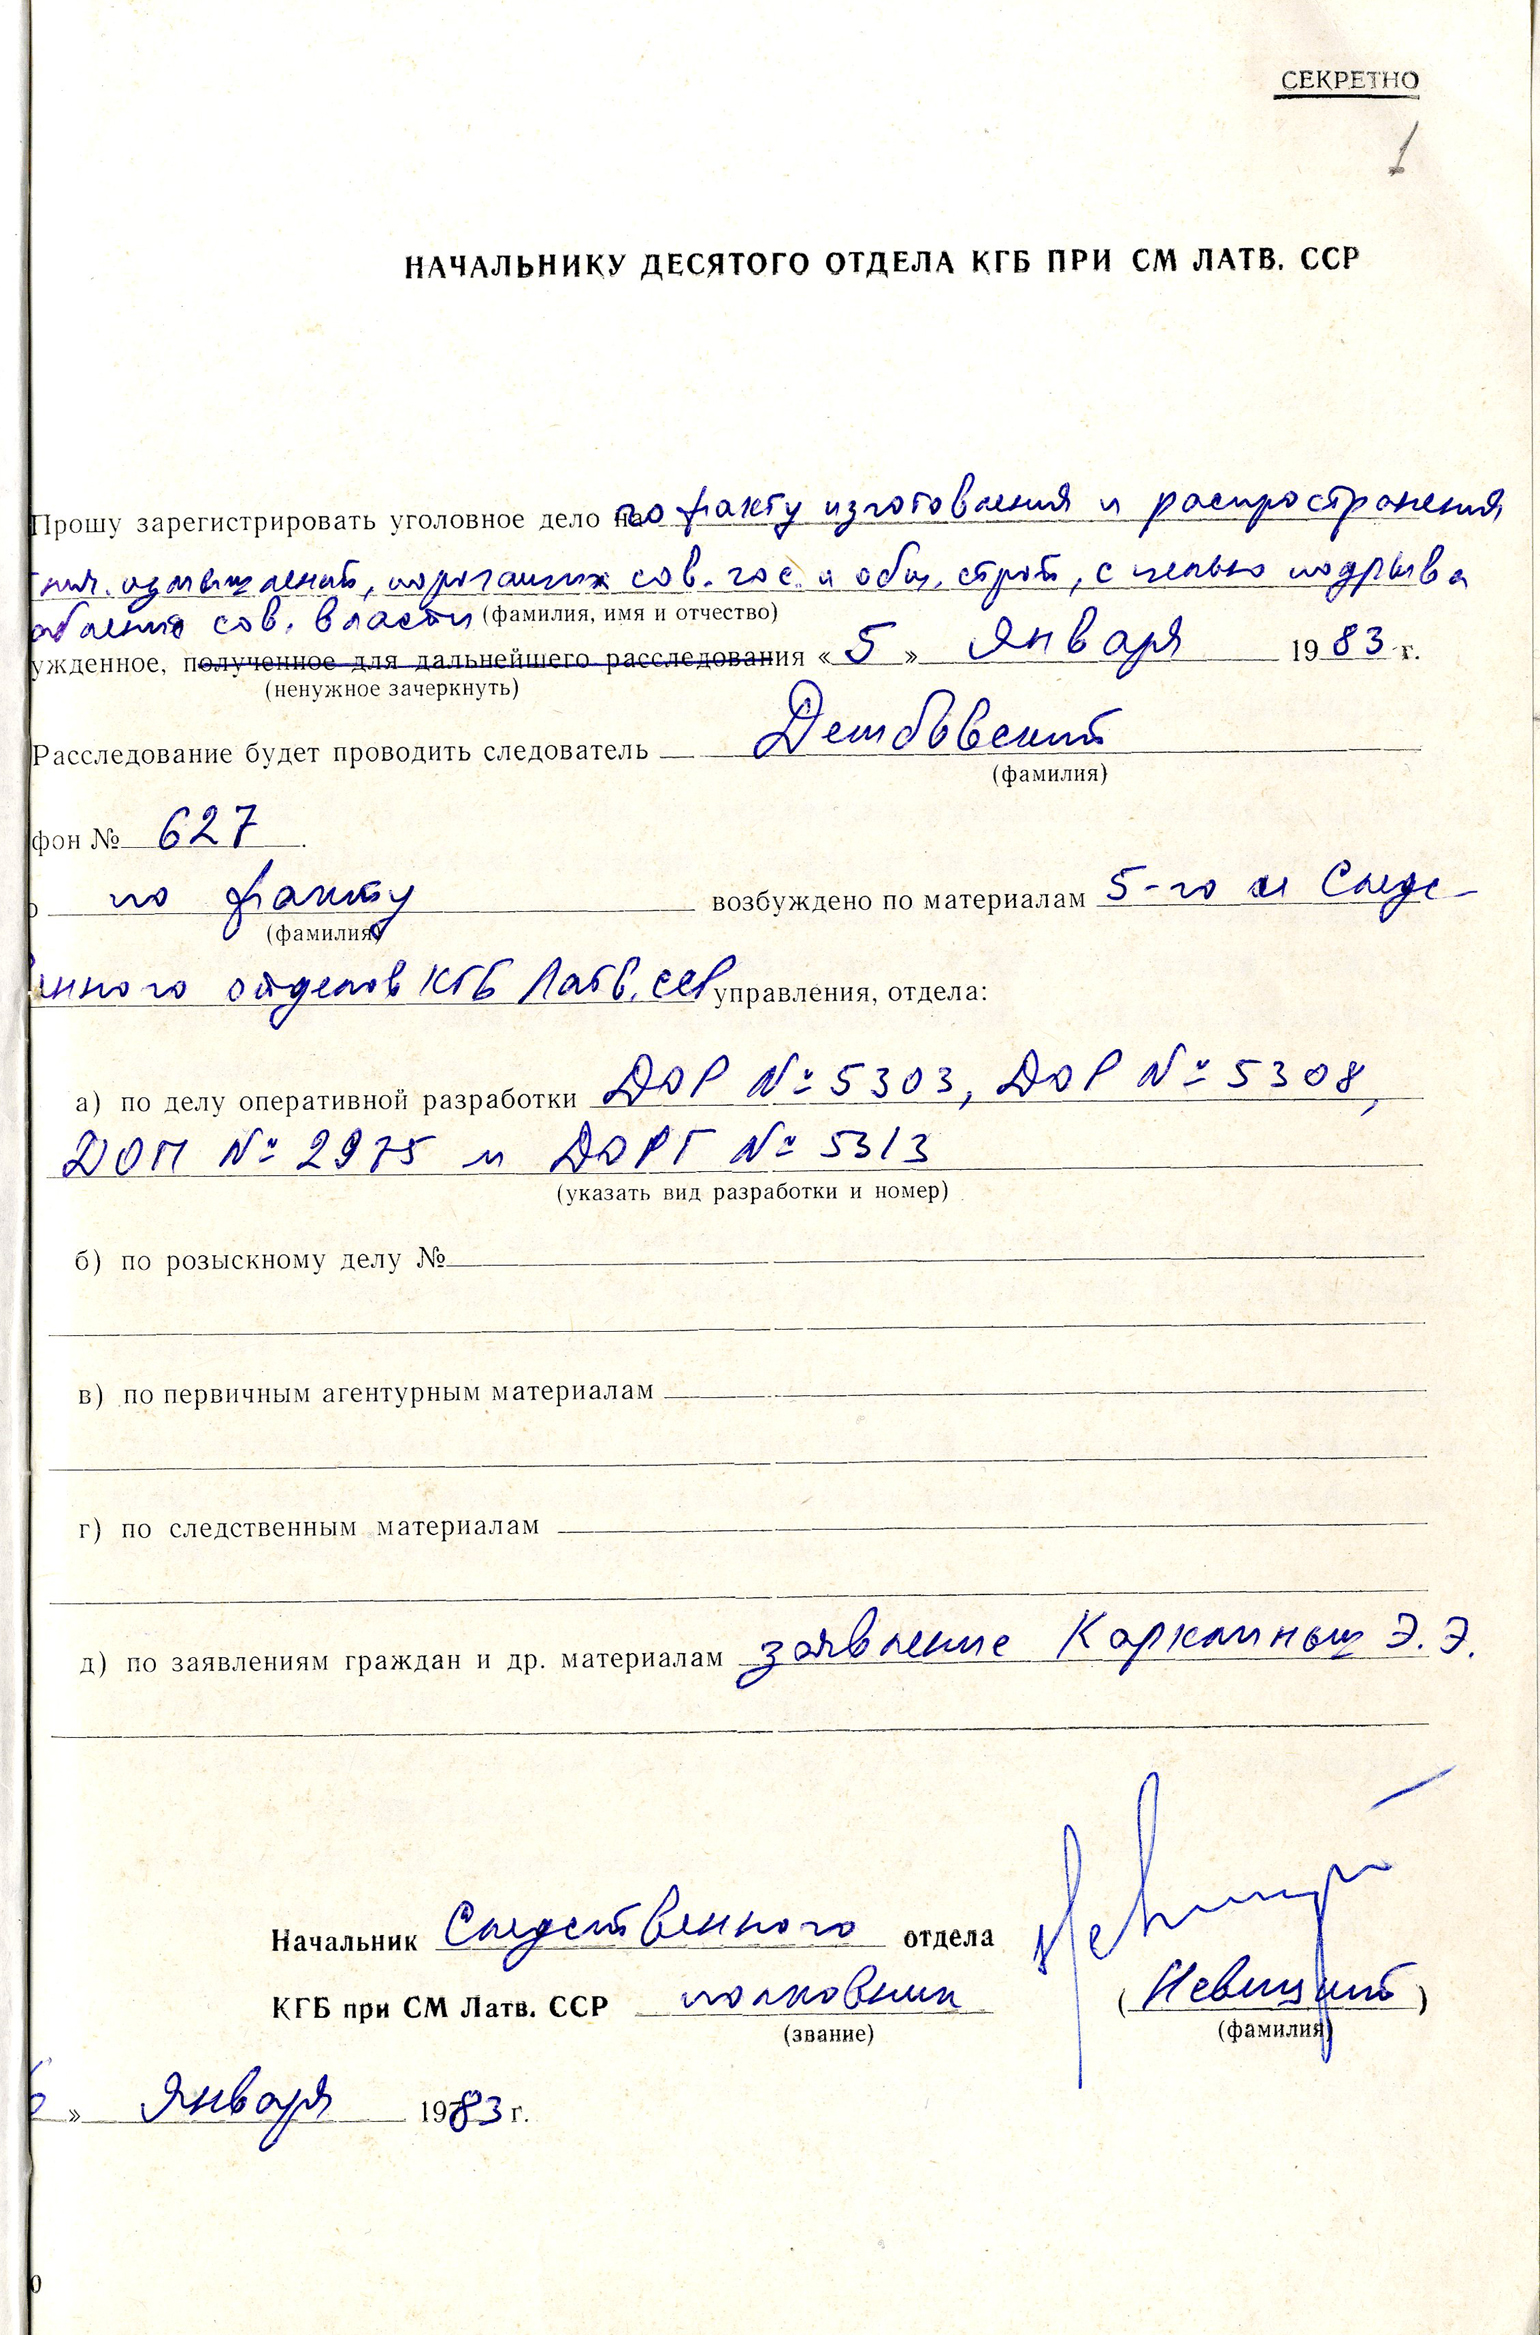 СЕКРЕТНО
1
НАЧАЛЬНИКУ ДЕСЯТОГО ОТДЕЛА КГБ ПРИ СМ ЛАТВ. ССР
Прошу зарегистрировать уголовное дело по факту изготовления и распространения
измышлений, порочащих сов. гос. и общ. строй, с целью подрыва
сов. власти (фамилия, имя и отчество)
ужденное, полученное для дальнейшего расследования « 5 » Января 1983 г.
(ненужное зачеркнуть)
Расследование будет проводить следователь
(фамилия)
фон № 627.
по факту возбуждено по материалам 5-го и Следс-
(фамилия)
енного отделов КГБ Латв. ССР управления, отдела:
а) по делу оперативной разработки ДОР № 5303, ДОР № 5308,
ДОП № 2975 и ДОРГ № 5313
(указать вид разработки и номер)
б) по розыскному делу №
в) по первичным агентурным материалам
г) по следственным материалам
д) по заявлениям граждан и др. материалам заявление Карклиньш Э.Э.
Начальник Следственного отдела
КГБ при СМ Латв. ССР полковник (Невицкий)
(звание) (фамилия)
» Января 1983 г.